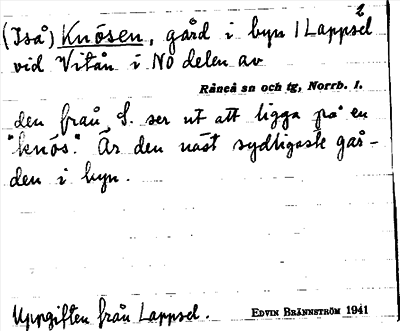 2
(Iså) Knösen, gård i byn / Lappsel
vid Vitån i NO delen av
Råneå sn och tg, Norrb. l.
den från S. ser ut att ligga på en
"knös". Är den näst sydligaste går-
den i byn.
Uppgiften från Lappsel. EDVIN BRÄNNSTRÖM 1941